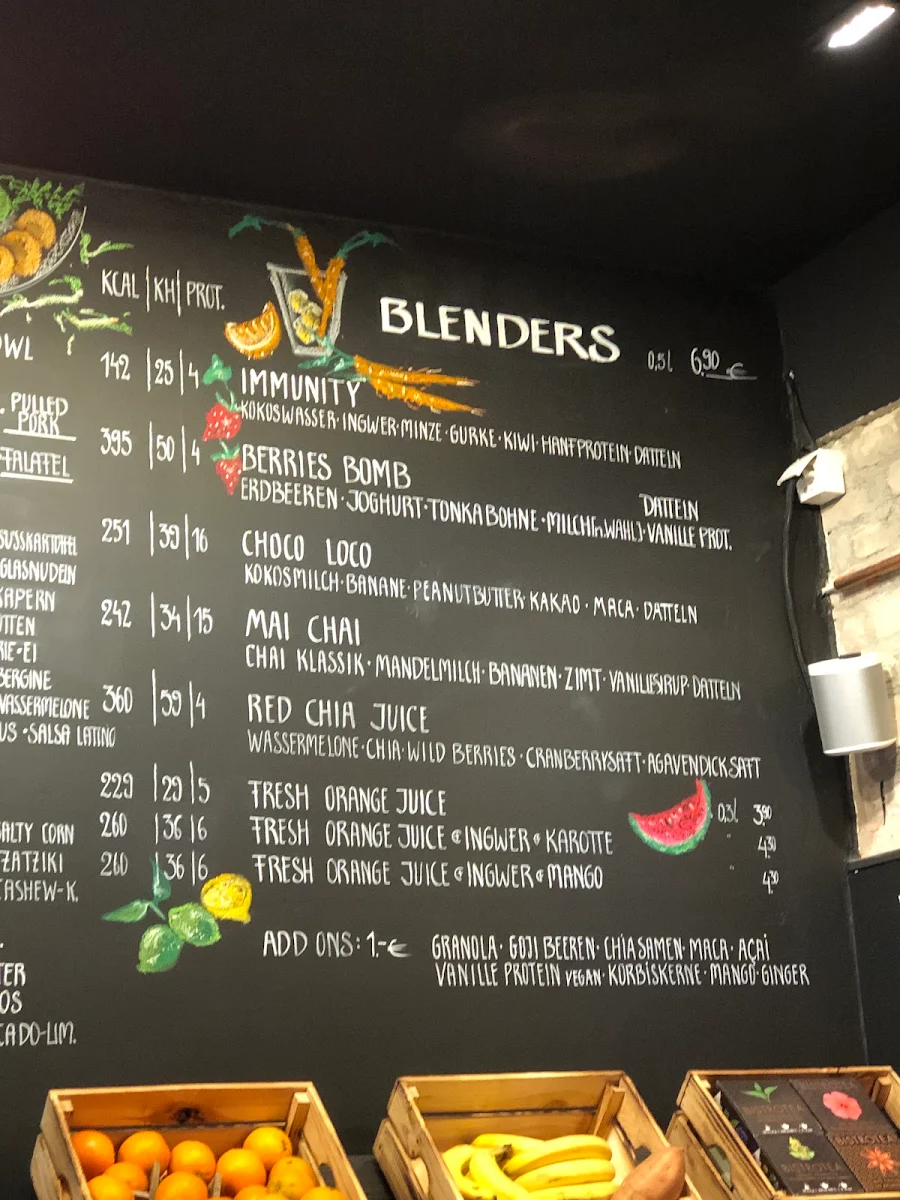 KCAL | KH | PROT.
BLENDERS 0,5l 6,90 €
OWL
142 | 25 | 4 IMMUNITY
KOKOSWASSER · INGWER · MINZE · GURKE · KIWI · HANFPROTEIN · DATTELN
. PULLED
PORK
395 | 50 | 4 BERRIES BOMB
FALAFEL
DATTELN
ERDBEEREN · JOGHURT · TONKABOHNE · MILCH (n. WAHL) · VANILLE PROT.
251 | 39 | 16 CHOCO LOCO
SÜSSKARTOFFEL
KOKOSMILCH · BANANE · PEANUTBUTTER · KAKAO · MACA · DATTELN
GLASNUDELN
KAPERN
242 | 34 | 15 MAI CHAI
TTEN
RIE-EI
CHAI KLASSIK · MANDELMILCH · BANANEN · ZIMT · VANILLESIRUP · DATTELN
BERGINE
WASSERMELONE 360 | 59 | 4 RED CHIA JUICE
US · SALSA LATINO
WASSERMELONE · CHIA · WILD BERRIES · CRANBERRYSAFT · AGAVENDICKSAFT
229 | 29 | 5 FRESH ORANGE JUICE 0,3l 3,90
ALTY CORN 260 | 36 | 6 FRESH ORANGE JUICE & INGWER & KAROTTE " 4,30
ZATZIKI 260 | 36 | 6 FRESH ORANGE JUICE & INGWER & MANGO " 4,30
CASHEW-K.
ADD ONS: 1.-€ GRANOLA · GOJI BEEREN · CHIA SAMEN · MACA · AÇAI
VANILLE PROTEIN VEGAN · KÜRBISKERNE · MANGO · GINGER
TER
OS
CADO-LIM.
BISTROTEA
BISTROTEA
BISTROTEA